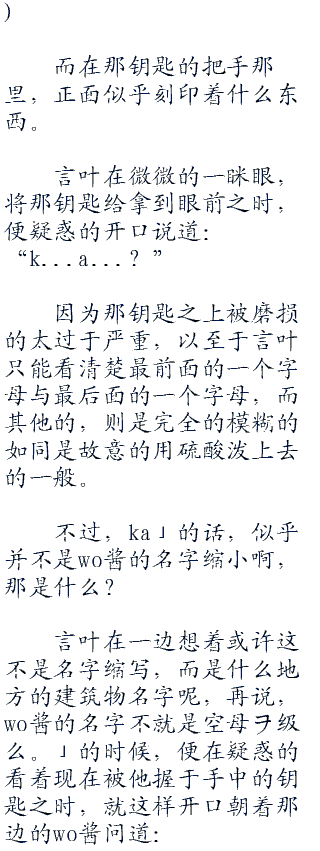 )
而在那钥匙的把手那
里，正面似乎刻印着什么东
西。
言叶在微微的一眯眼，
将那钥匙给拿到眼前之时，
便疑惑的开口说道：
“k...a...？”
因为那钥匙之上被磨损
的太过于严重，以至于言叶
只能看清楚最前面的一个字
母与最后面的一个字母，而
其他的，则是完全的模糊的
如同是故意的用硫酸泼上去
的一般。
不过，ka」的话，似乎
并不是wo酱的名字缩小啊，
那是什么？
言叶在一边想着或许这
不是名字缩写，而是什么地
方的建筑物名字呢，再说，
wo酱的名字不就是空母ヲ级
么。」的时候，便在疑惑的
看着现在被他握于手中的钥
匙之时，就这样开口朝着那
边的wo酱问道：